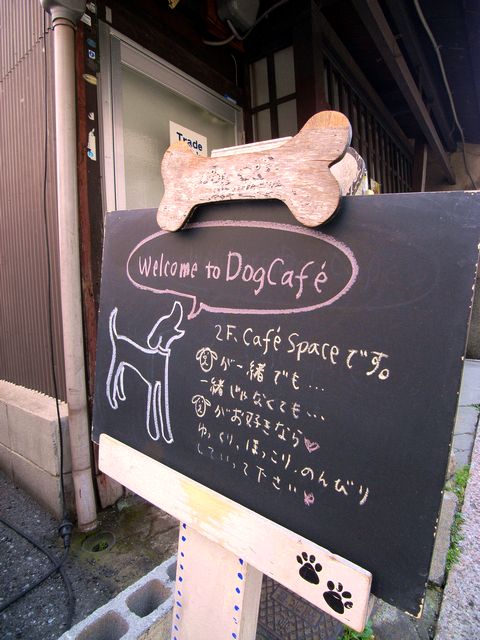 Trade
Welcome to DogCafé
2F、Café Spaceです。
が一緒でも…
一緒じゃなくても…
がお好きなら♥
ゆっくり、ほっこり、のんびり
していって下さい♥